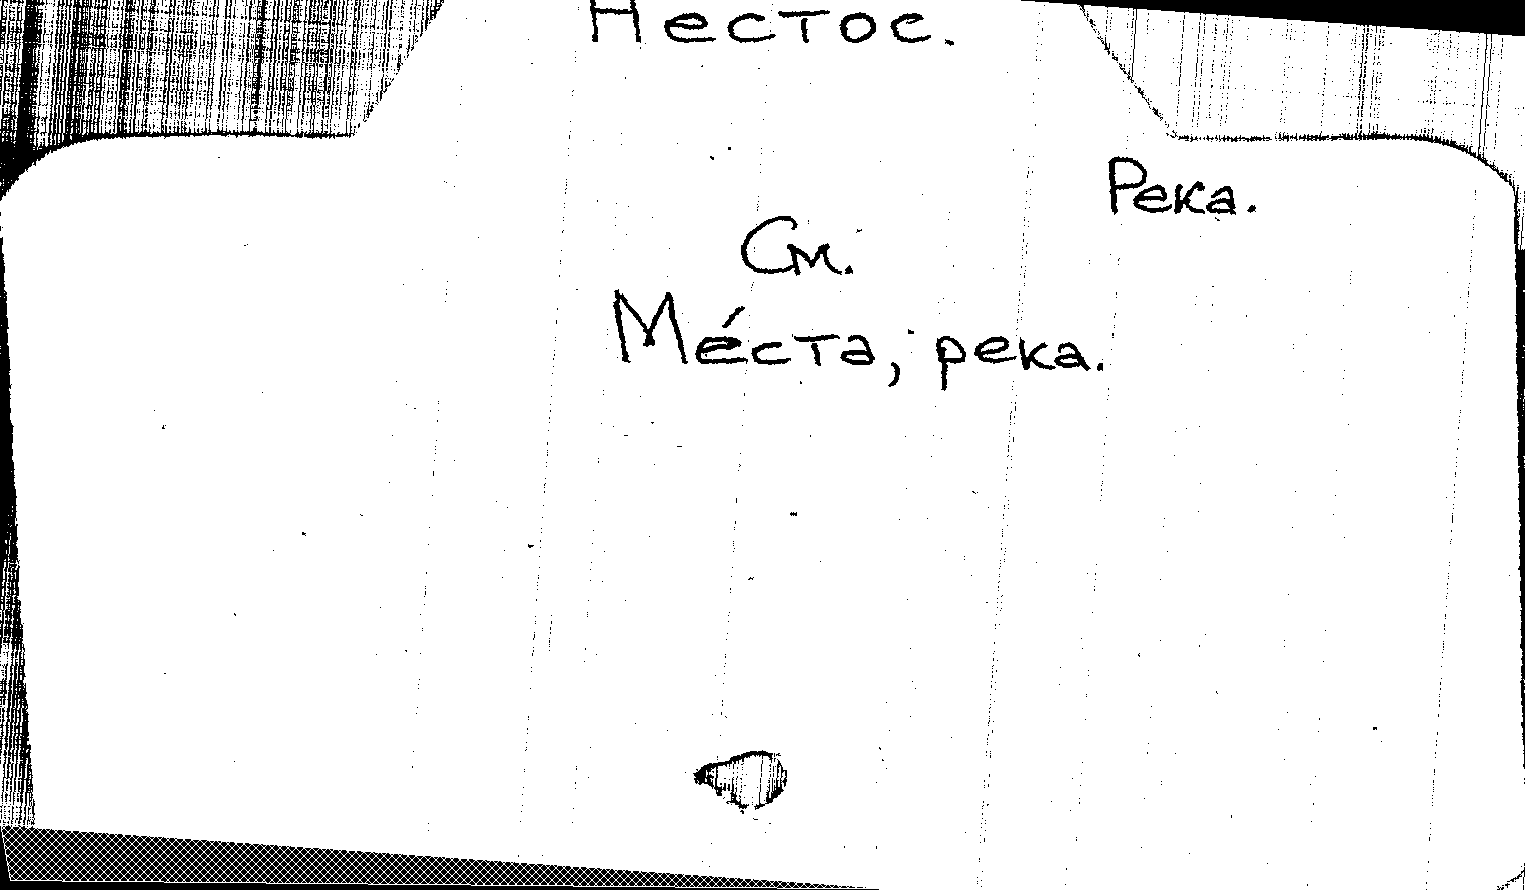 Нестос.
Река.
См.
Ме́ста, река.